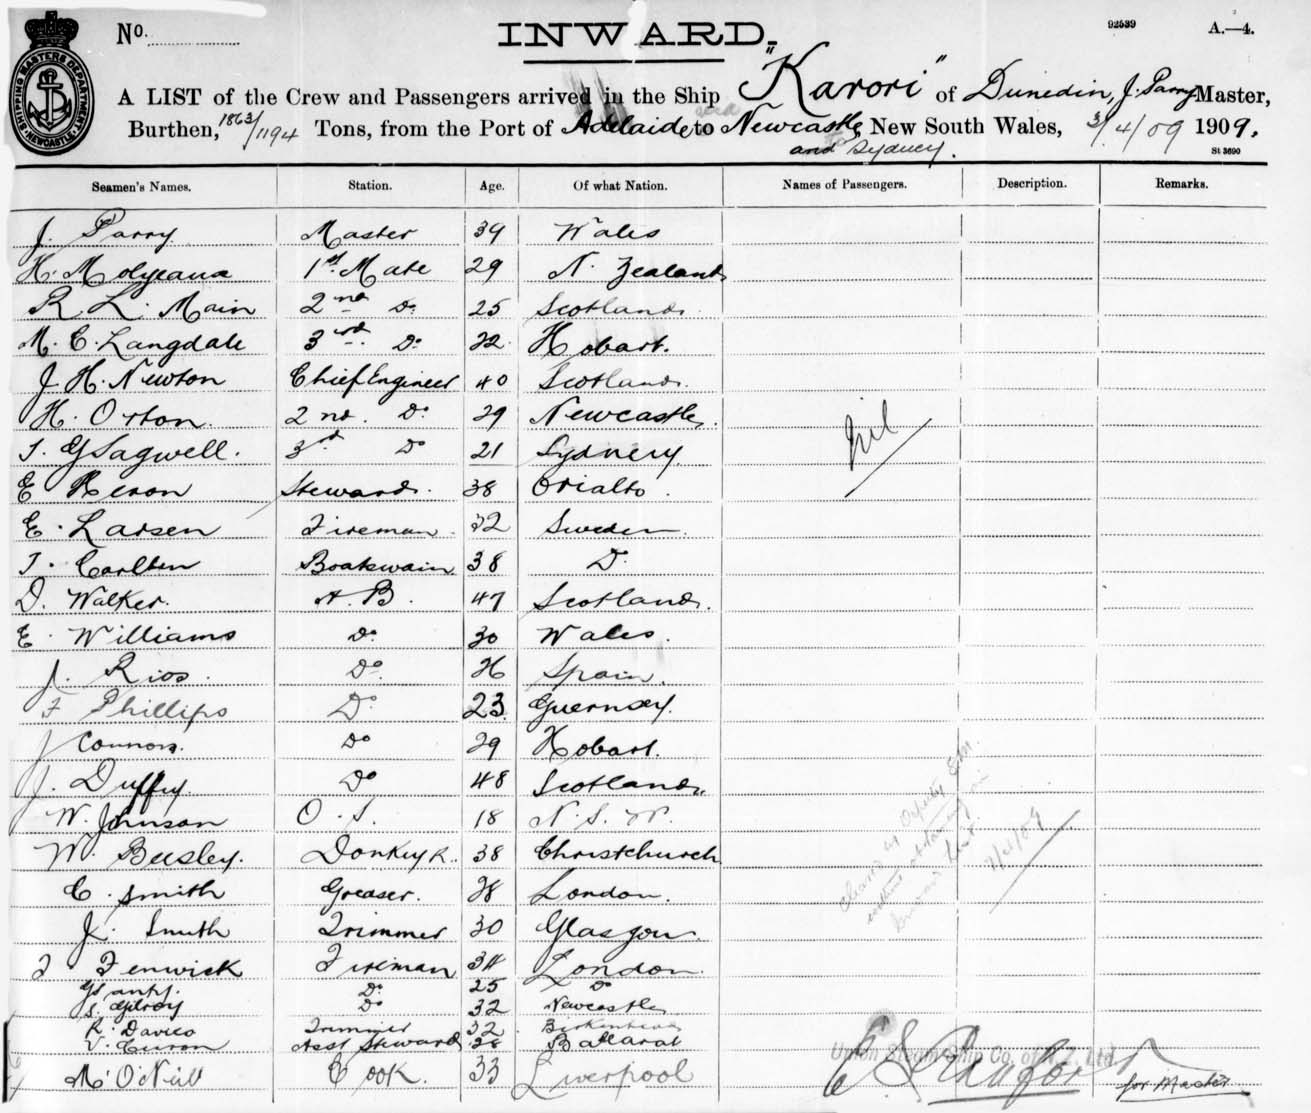 No. INWARD. 92539 A.—4.
SHIPPING MASTERS DEPARTMENT NEWCASTLE
A LIST of the Crew and Passengers arrived in the Ship "Karori" of Dunedin, J. Parry Master,
Burthen, 1863/1194 Tons, from the Port of Adelaide to Newcastle, New South Wales, 3/4/09 1909.
and Sydney. St 3690
Seamen's Names. Station. Age. Of what Nation. Names of Passengers. Description. Remarks.
J. Parry Master 39 Wales
H. Molyeaux 1st Mate 29 N. Zealand
R. L. Main 2nd Do 25 Scotland
M. E. Langdale 3rd Do 22 Hobart.
J. H. Newton Chief Engineer 40 Scotland
H. Orton. 2nd. Do 29 Newcastle
T. Sagwell. 3rd Do 21 Sydney
Nil
E Heron Steward. 38 Orialto.
E. Larsen Fireman 32 Sweden
T. Carlsen Boatswain 38 Do
D. Walker. A.B. 47 Scotland.
E. Williams Do 30 Wales.
J. Rios. Do 26 Spain.
F Phillips Do 23 Guernsey.
J Connors. Do 29 Hobart.
J. Duffy. Do 48 Scotland
W. Johnson O.S. 18 N.S.W.
W. Beesley. Donkey 38 Christchurch
C. Smith Greaser. 28 London.
J. Smith Trimmer 30 Glasgow.
Fenwick Fireman 34 London
Do 25 Do
S. Gilroy Do 32 Newcastle
R. Davies Trimmer 32 Birkenhead
V. Curon Asst Steward 28 Ballarat
M. O'Neill Cook. 33 Liverpool
Union Steam Ship Co. of N.Z. Ltd
for Master